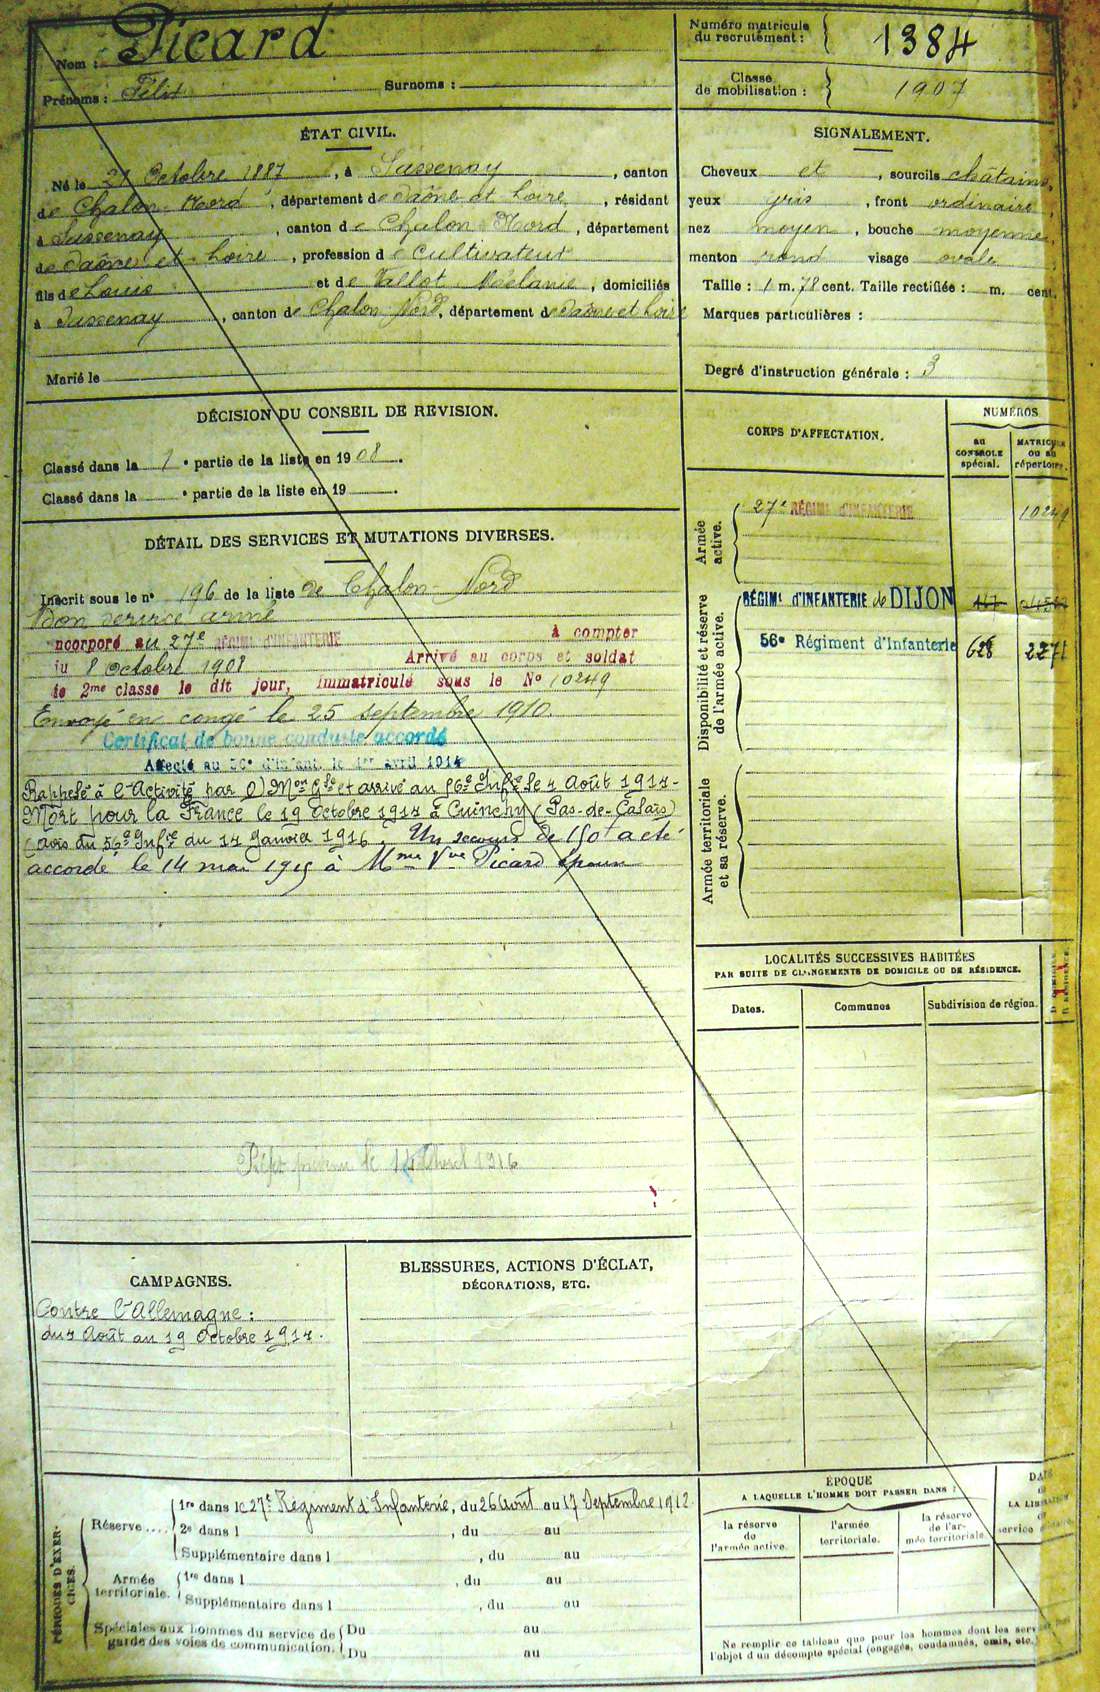 Nom : Picard
Prénoms : Félix Surnoms :
Numéro matricule du recrutement : 1384
Classe de mobilisation : 1907
ÉTAT CIVIL.
Né le 21 Octobre 1887, à Sassenay, canton
de Chalon Nord, département de Saône et Loire, résidant
à Sassenay, canton de Chalon Nord, département
de Saône et Loire, profession de Cultivateur
fils de Louis et de Vallot Mélanie, domiciliés
à Sassenay, canton de Chalon Nord, département de Saône et Loire
Marié le
SIGNALEMENT.
Cheveux et , sourcils châtains,
yeux gris, front ordinaire,
nez moyen, bouche moyenne,
menton rond visage ovale
Taille : 1 m. 78 cent. Taille rectifiée : m. cent.
Marques particulières :
Degré d'instruction générale : 3
DÉCISION DU CONSEIL DE REVISION.
Classé dans la 1e partie de la liste en 1908.
Classé dans la e partie de la liste en 19 .
DÉTAIL DES SERVICES ET MUTATIONS DIVERSES.
Inscrit sous le no 196 de la liste de Chalon Nord
Bon service armé
ncorporé au 27e RÉGIMENT D'INFANTERIE à compter
du 8 Octobre 1908 Arrivé au corps et soldat
de 2me classe le dit jour, immatriculé sous le No 10249
Envoyé en congé le 25 septembre 1910.
Certificat de bonne conduite accordé
Affecté au 56e d'Infant. le 1er avril 1914
Rappelé à l'Activité par O) Mon Gle et arrivé au 56e Infie le 4 Août 1914-
Mort pour la France le 19 Octobre 1914 à Cuinchy (Pas-de-Calais)
(avis du 56e Infie du 14 Janvier 1916. Un secours de 150f a été
accordé le 14 mai 1915 à Mme Vve Picard
1916
CORPS D'AFFECTATION.
NUMÉROS
au CONTROLE spécial.
MATRICULE OU AU répertoire.
Armée active.
27e RÉGIMENT D'INFANTERIE 10249
Disponibilité et réserve de l'armée active.
RÉGIMt D'INFANTERIE de DIJON
56e Régiment d'Infanterie 628 2271
Armée territoriale et sa réserve.
LOCALITÉS SUCCESSIVES HABITÉES
PAR SUITE DE CHANGEMENTS DE DOMICILE OU DE RÉSIDENCE.
Dates. Communes Subdivision de région.
CAMPAGNES.
Contre l'Allemagne :
du 4 Août au 19 Octobre 1914.
BLESSURES, ACTIONS D'ÉCLAT,
DÉCORATIONS, ETC.
PÉRIODES D'EXERCICES.
Réserve....
1re dans le 27e Régiment d'Infanterie, du 26 Août au 17 Septembre 1912.
2e dans l , du au
Supplémentaire dans l , du au
Armée territoriale.
1re dans l , du au
Supplémentaire dans l , du au
Spéciales aux hommes du service de garde des voies de communication.
Du au
Du au
ÉPOQUE
A LAQUELLE L'HOMME DOIT PASSER DANS :
la réserve de l'armée active.
l'armée territoriale.
la réserve de l'armée territoriale.
Ne remplir ce tableau que pour les hommes dont les
l'objet d'un décompte spécial (engagés, condamnés, omis, etc.)